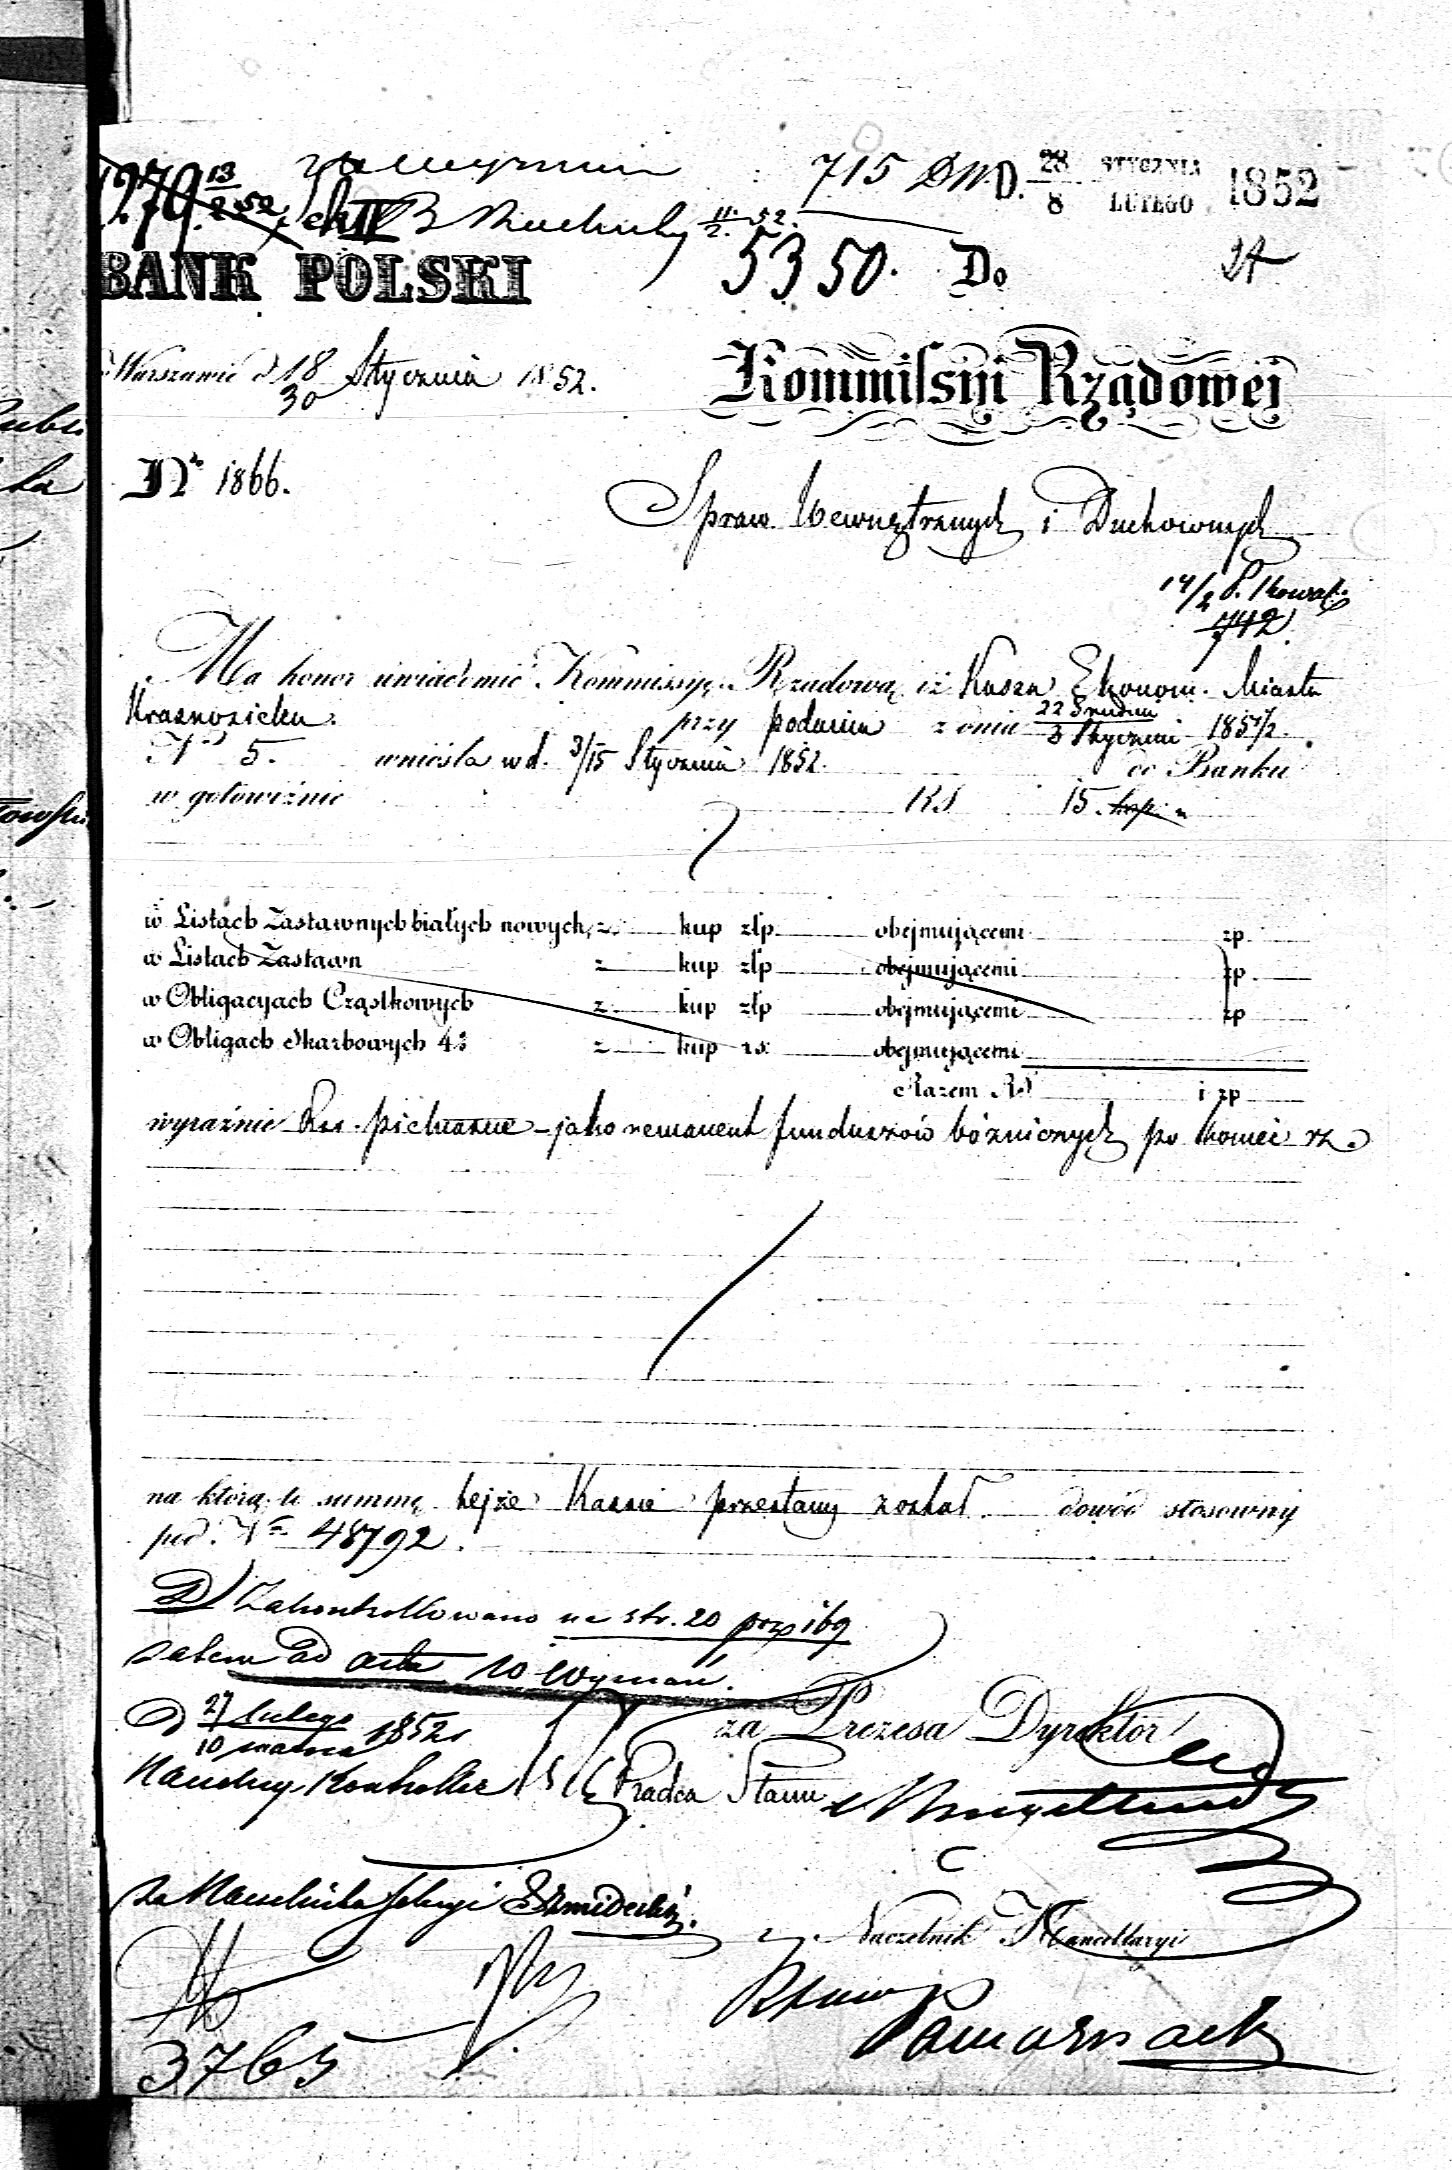 715 D. 28/8 STYCZNIA LUTEGO 1852
5350. Do 24
BANK POLSKI
Warszawie d 18/30 Stycznia 1852.
Kommissyi Rządowej
Nr 1866.
Spraw Wewnętrznych i Duchownych
742
Ma honor uwiadomić Kommissyę Rządową iż Kassa Ekonom. Miasta
Krasnosielca przy podaniu z dnia 22 Grudnia/3 Stycznia 1851/2.
Nr 5. wniosła w d. 3/15 Stycznia 1852. do Banku
w gotowiźnie RS 15 kop. "
w Listach Zastawnych białych nowych, z kup złp obejmującemi zp
w Listach Zastawn z kup złp obejmującemi zp
w Obligacyach Cząstkowych z kup złp obejmującemi zp
w Obligach Skarbowych 4% z kup rs obejmującemi
Razem RS i zp
wyraźnie Rsr. piętnaście - jako remanent funduszów bóżnicznych po koniec
na którą to summę tejże Kassie przesłany został dowód stosowny
pod Nr 48792.
Zakontrollowano na str. 20 poz 169
zatem ad acta
D 27 Lutego/10 marca 1852
Naczelny Kontroller
za Prezesa Dyrektor
Radca Stanu
za Naczelnika Sekcyi
Naczelnik Kancellaryi
3765